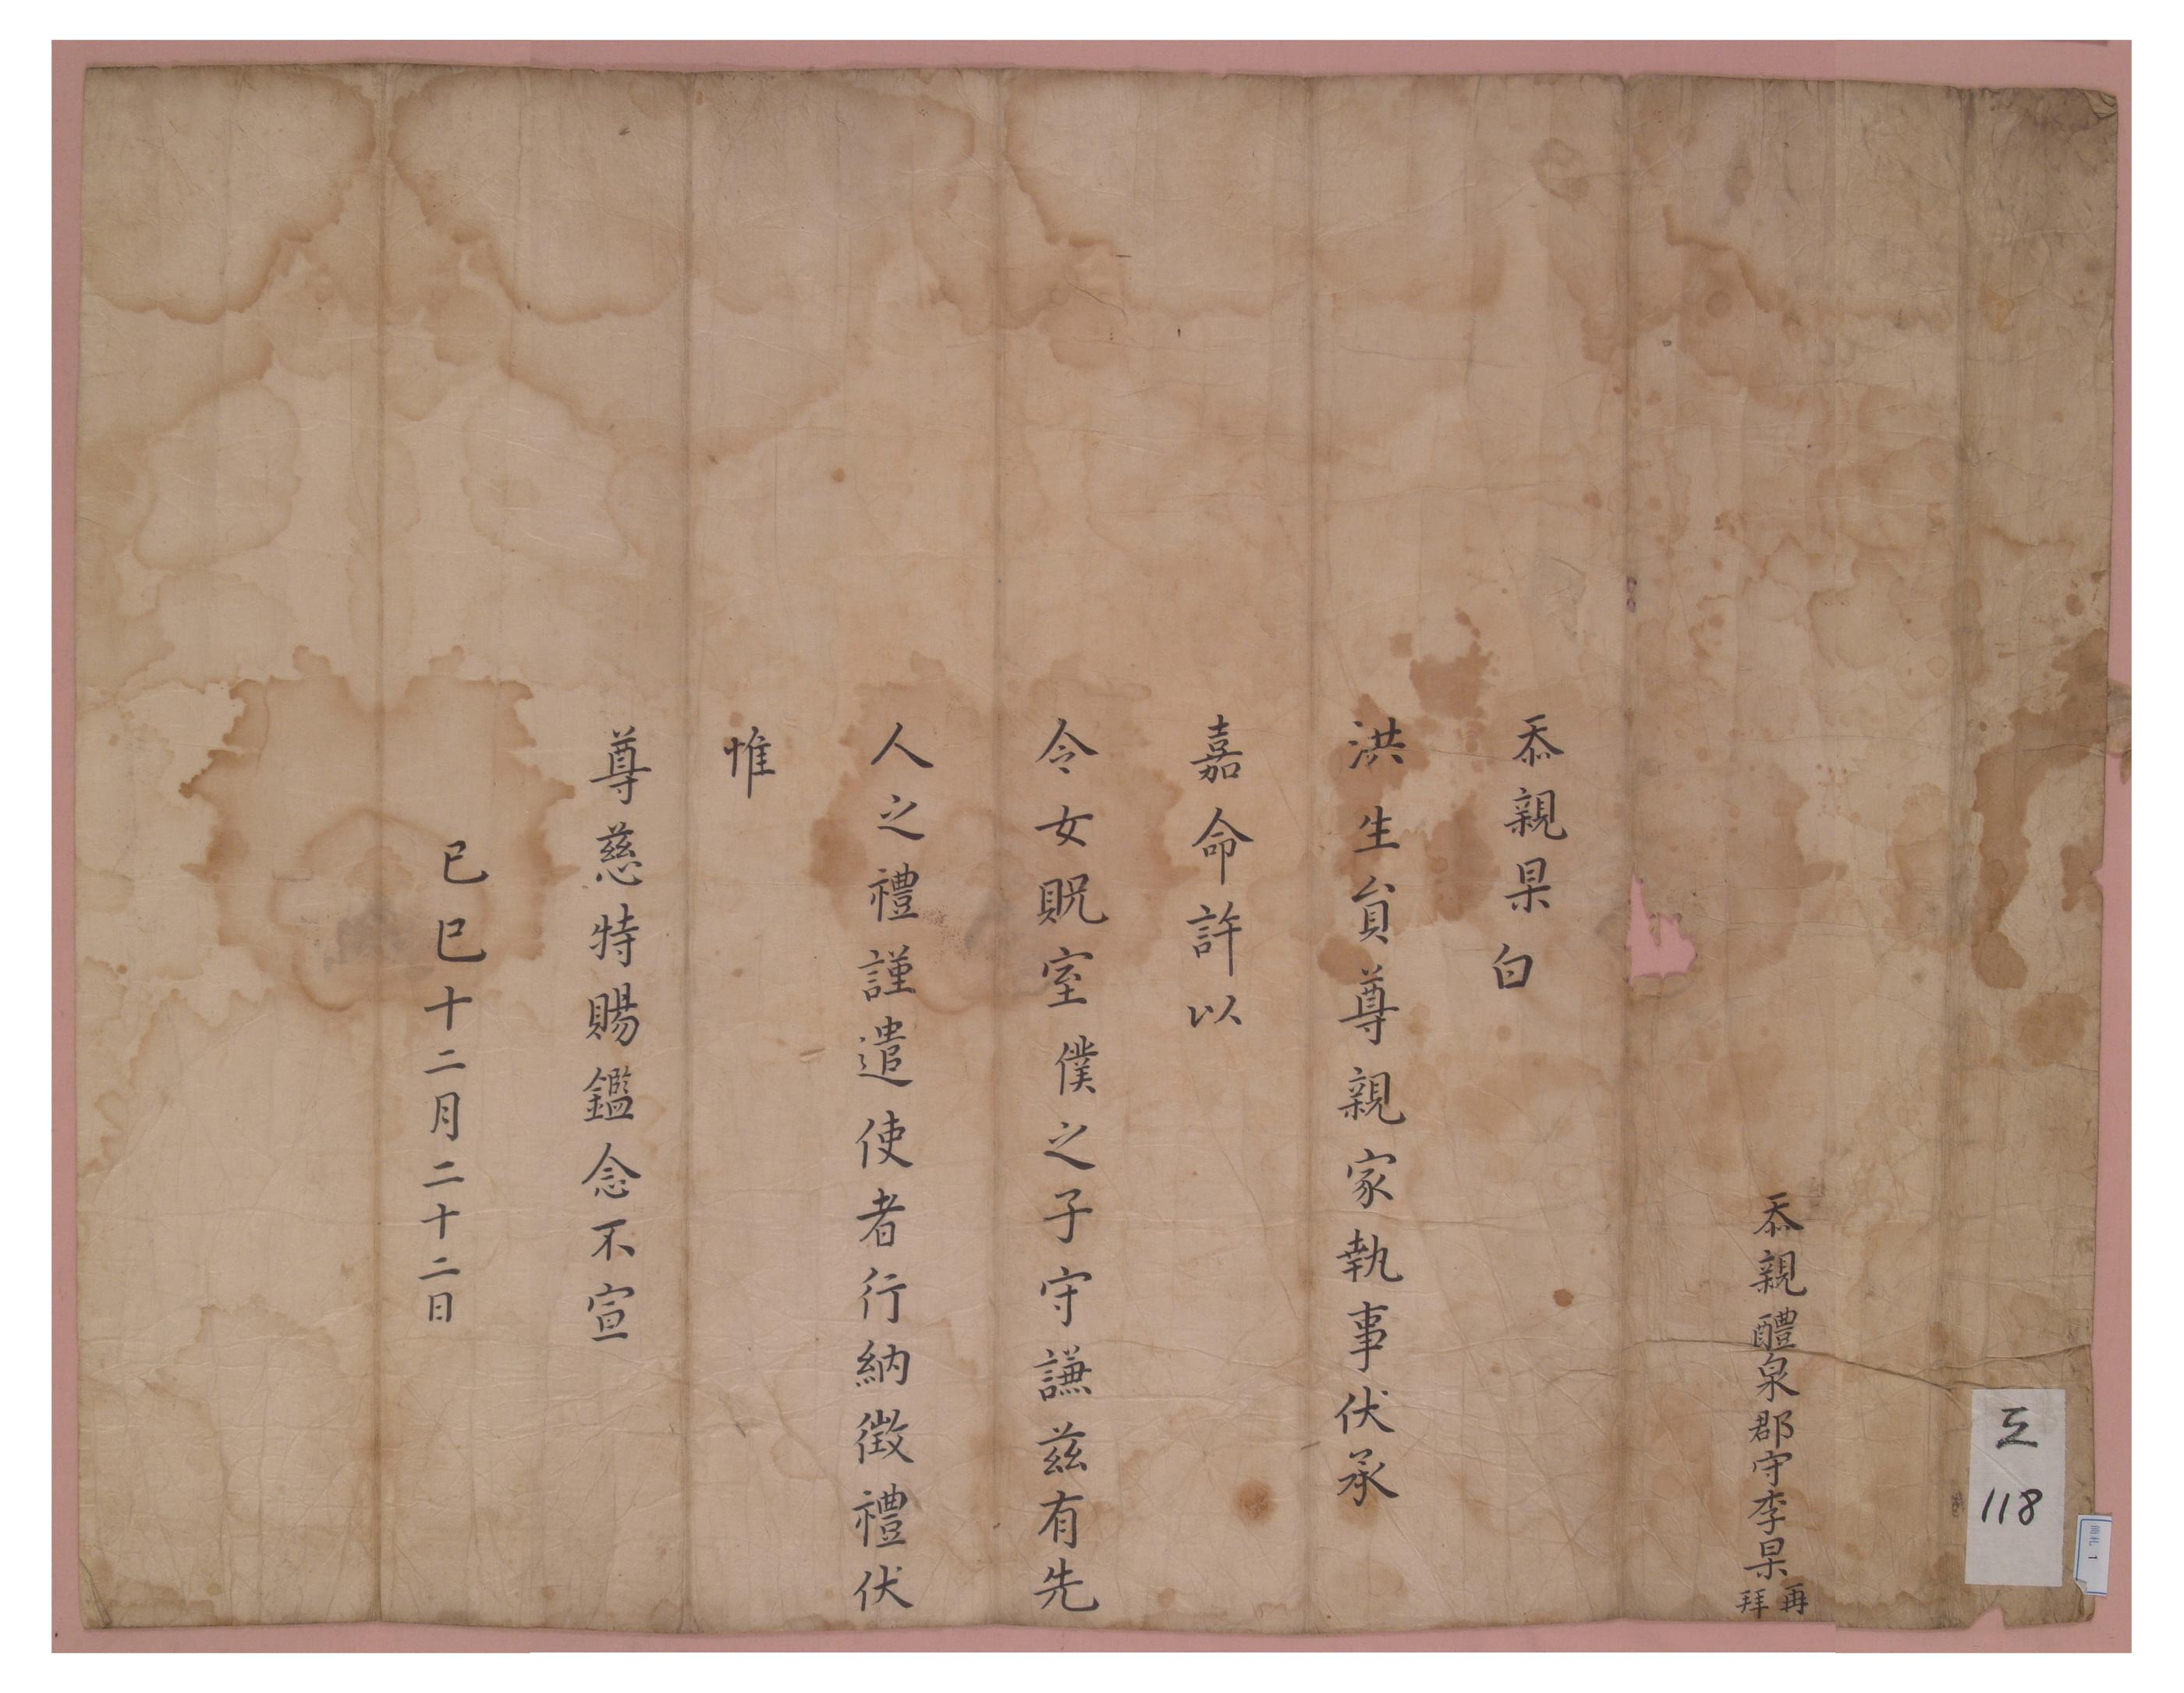 忝親醴泉郡守李杲再拜
忝親杲白
洪生員尊親家執事伏承
嘉命許以
令女貺室僕之子守謙茲有先
人之禮謹遣使者行納徵禮伏
惟
尊慈特賜鑑念不宣
己巳十二月二十二日
118
簡札 1